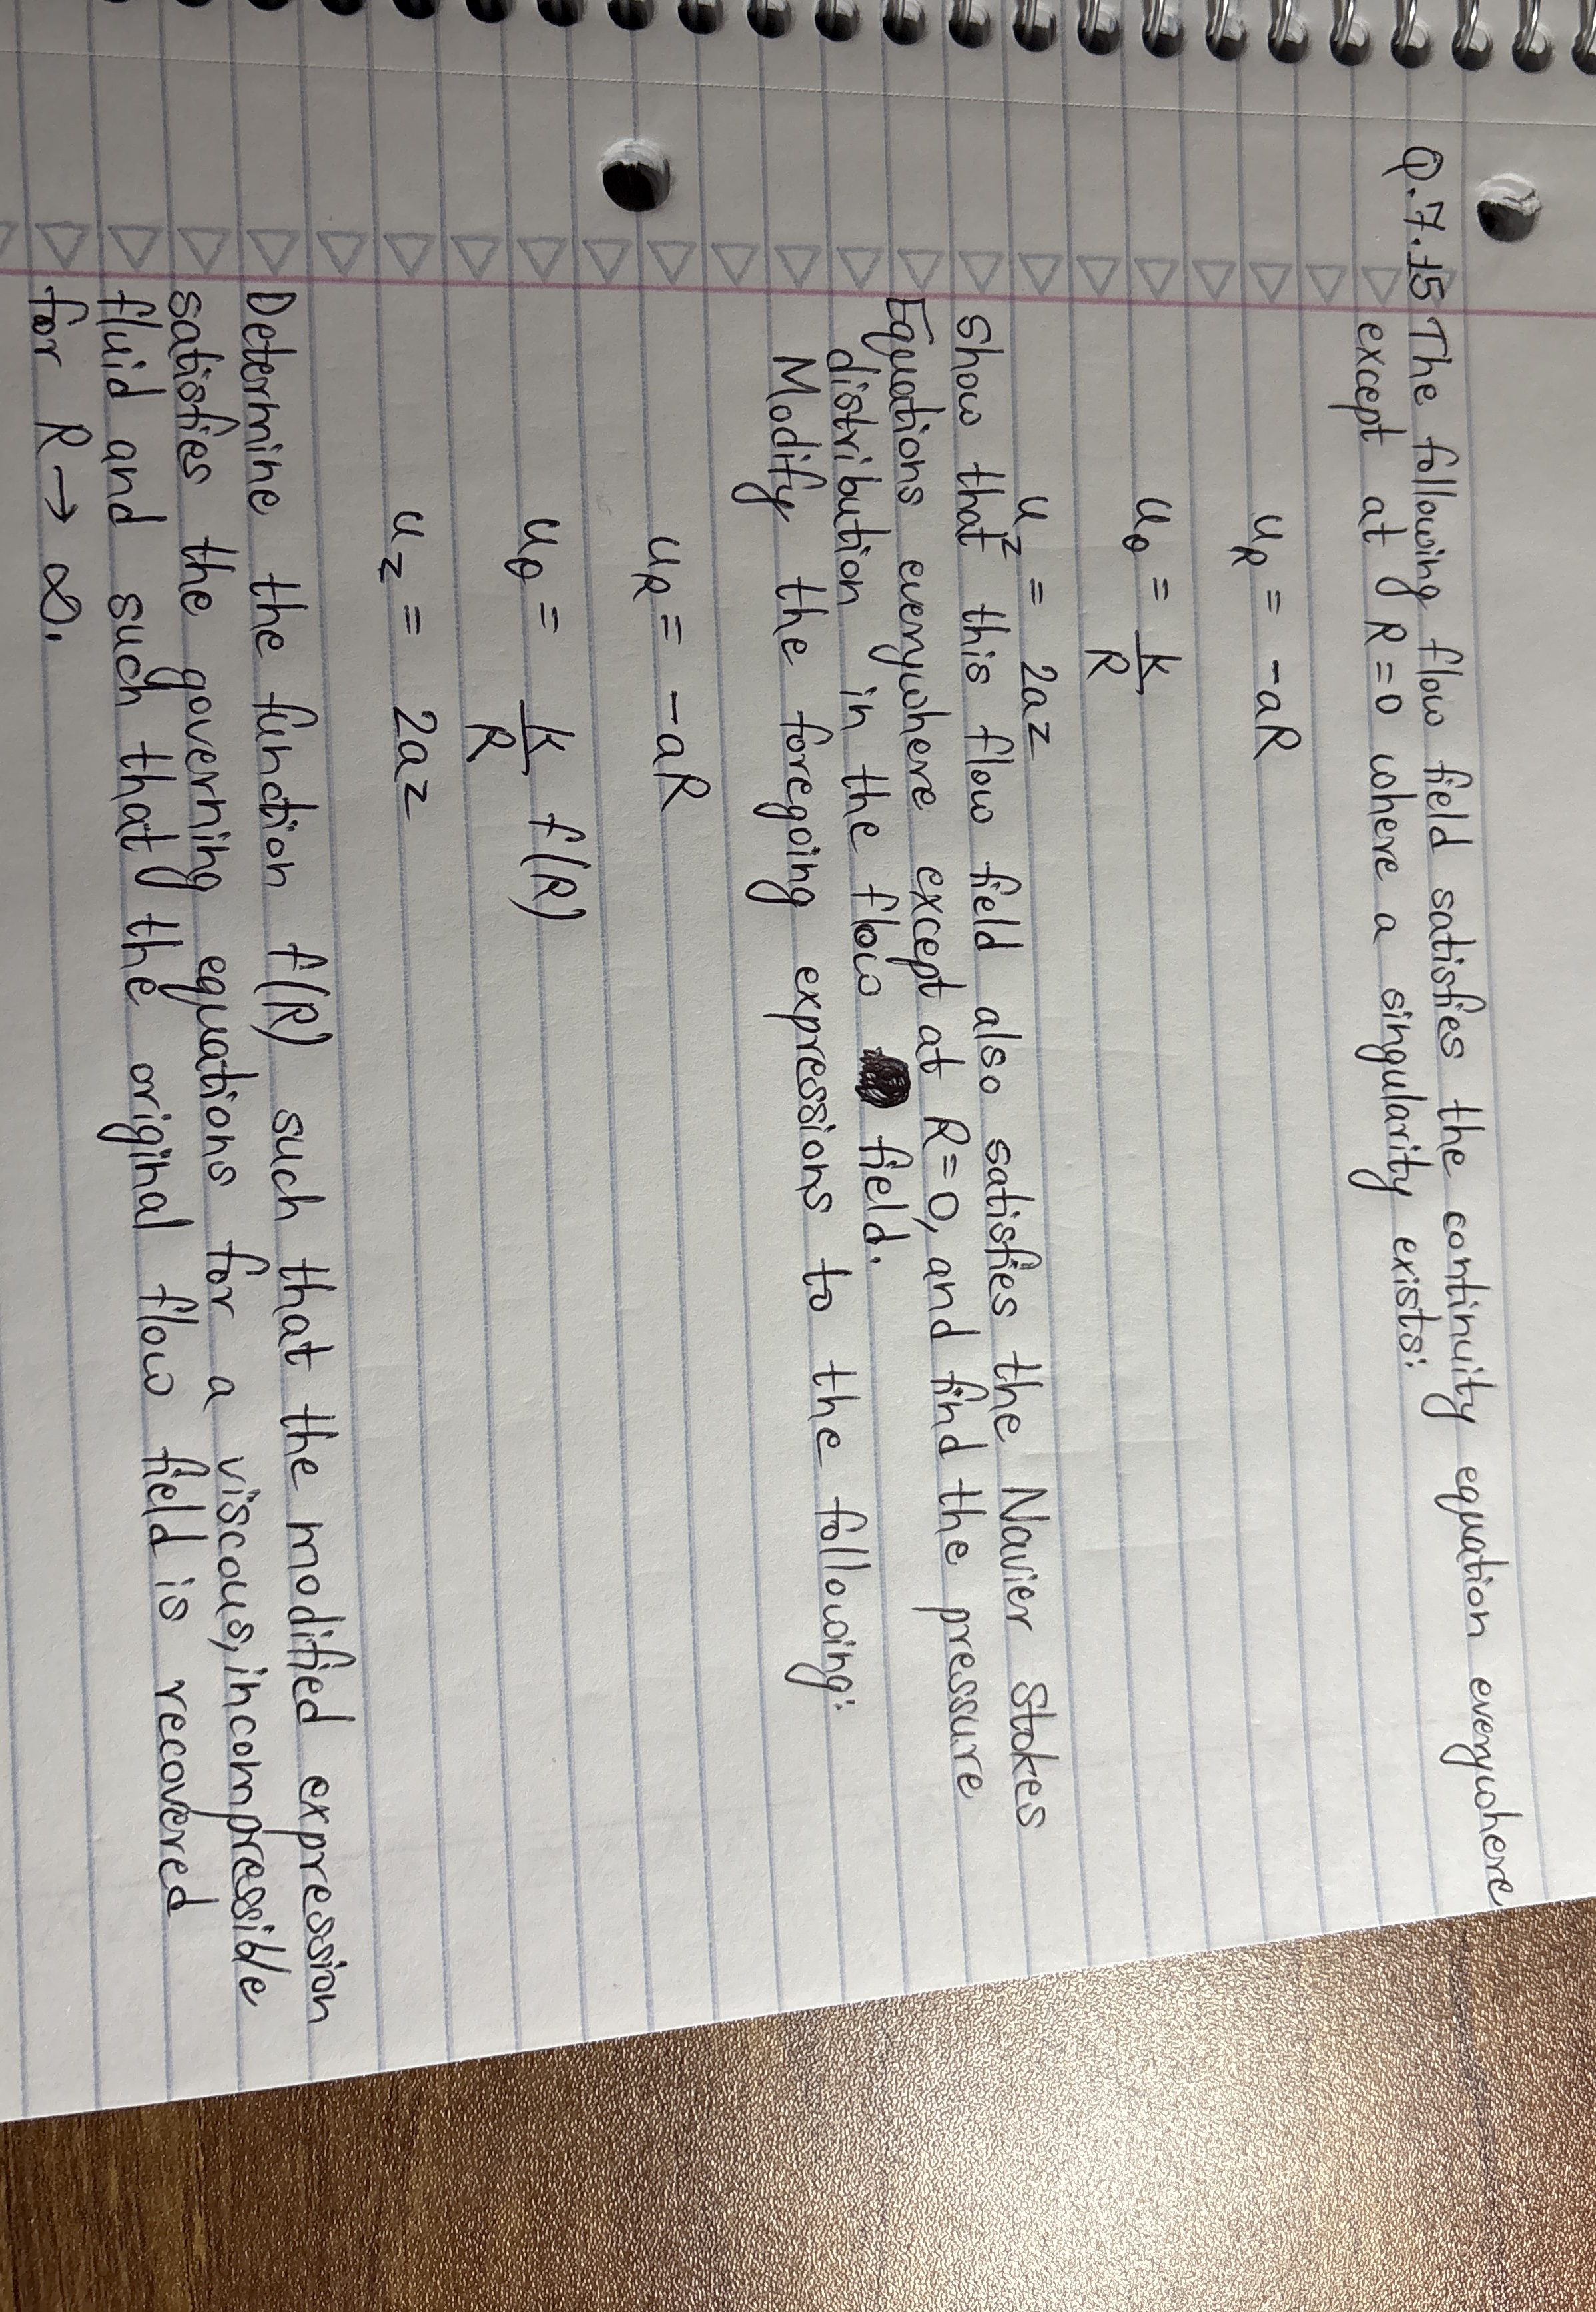 Q.7.15 The following flow field satisfies the continuity equation everywhere
except at R=0 where a singularity exists:
u_R = -aR
u_θ = K/R
u_z = 2az
Show that this flow field also satisfies the Navier Stokes
Equations everywhere except at R=0, and find the pressure
distribution in the flow field.
Modify the foregoing expressions to the following:
u_R = -aR
u_θ = K/R f(R)
u_z = 2az
Determine the function f(R) such that the modified expression
satisfies the governing equations for a viscous, incompressible
fluid and such that the original flow field is recovered
for R → ∞.